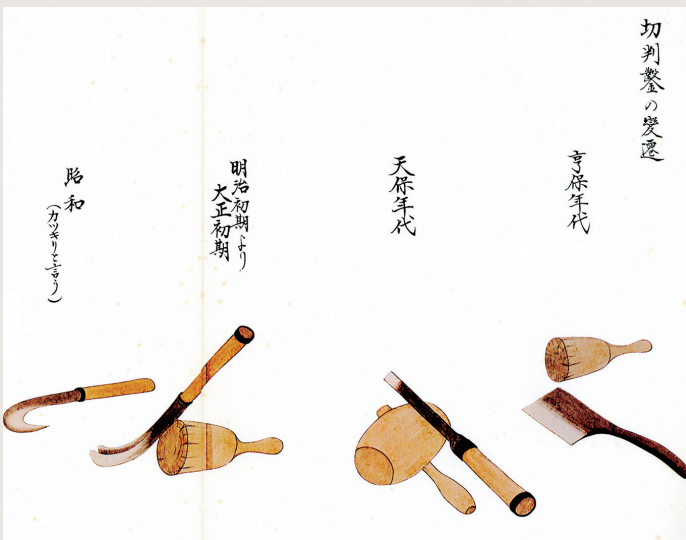 切判鑿の変遷
亨保年代
天保年代
明治初期より
大正初期
昭和
（カツキリと言う）